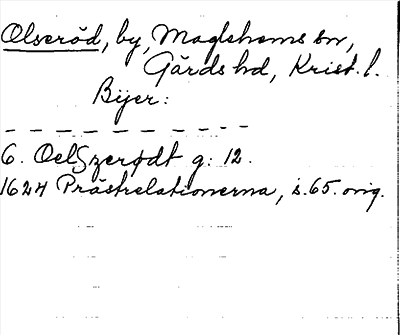 Olseröd, by, Maglehems sn,
Gärds hd, Krist. l.
Bijer:
6. Oelszerødt g: 12.
1624 Prästrelationerna, s. 65. orig.